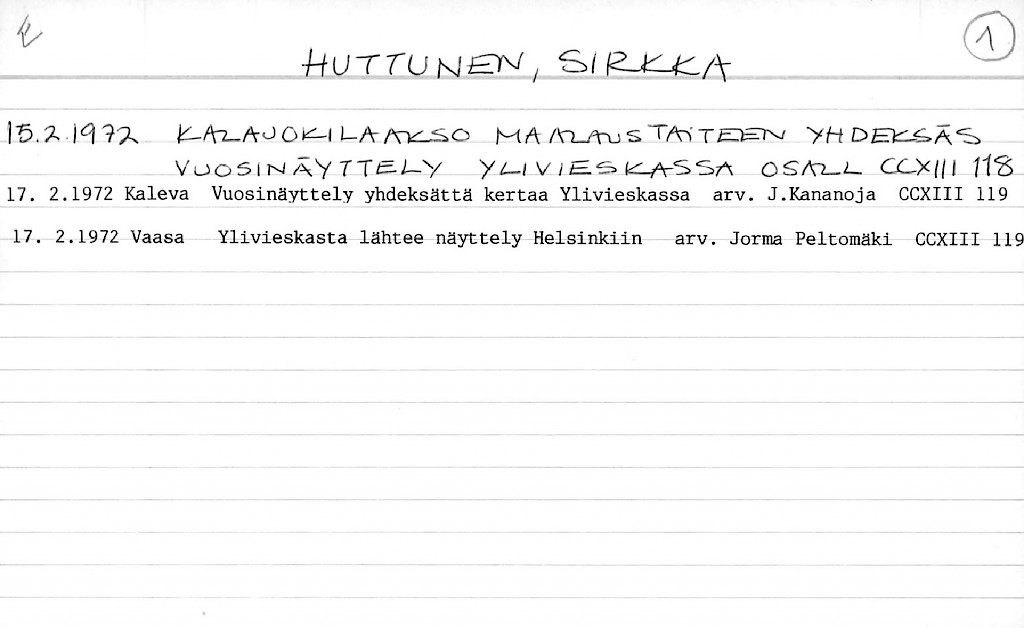 E
1
HUTTUNEN, SIRKKA
15.2.1972 KALAJOKILAAKSO MAALAUSTAITEEN YHDEKSÄS
VUOSINÄYTTELY YLIVIESKASSA OSALL CCXIII 118
17. 2.1972 Kaleva Vuosinäyttely yhdeksättä kertaa Ylivieskassa arv. J.Kananoja CCXIII 119
17. 2.1972 Vaasa Ylivieskasta lähtee näyttely Helsinkiin arv. Jorma Peltomäki CCXIII 119